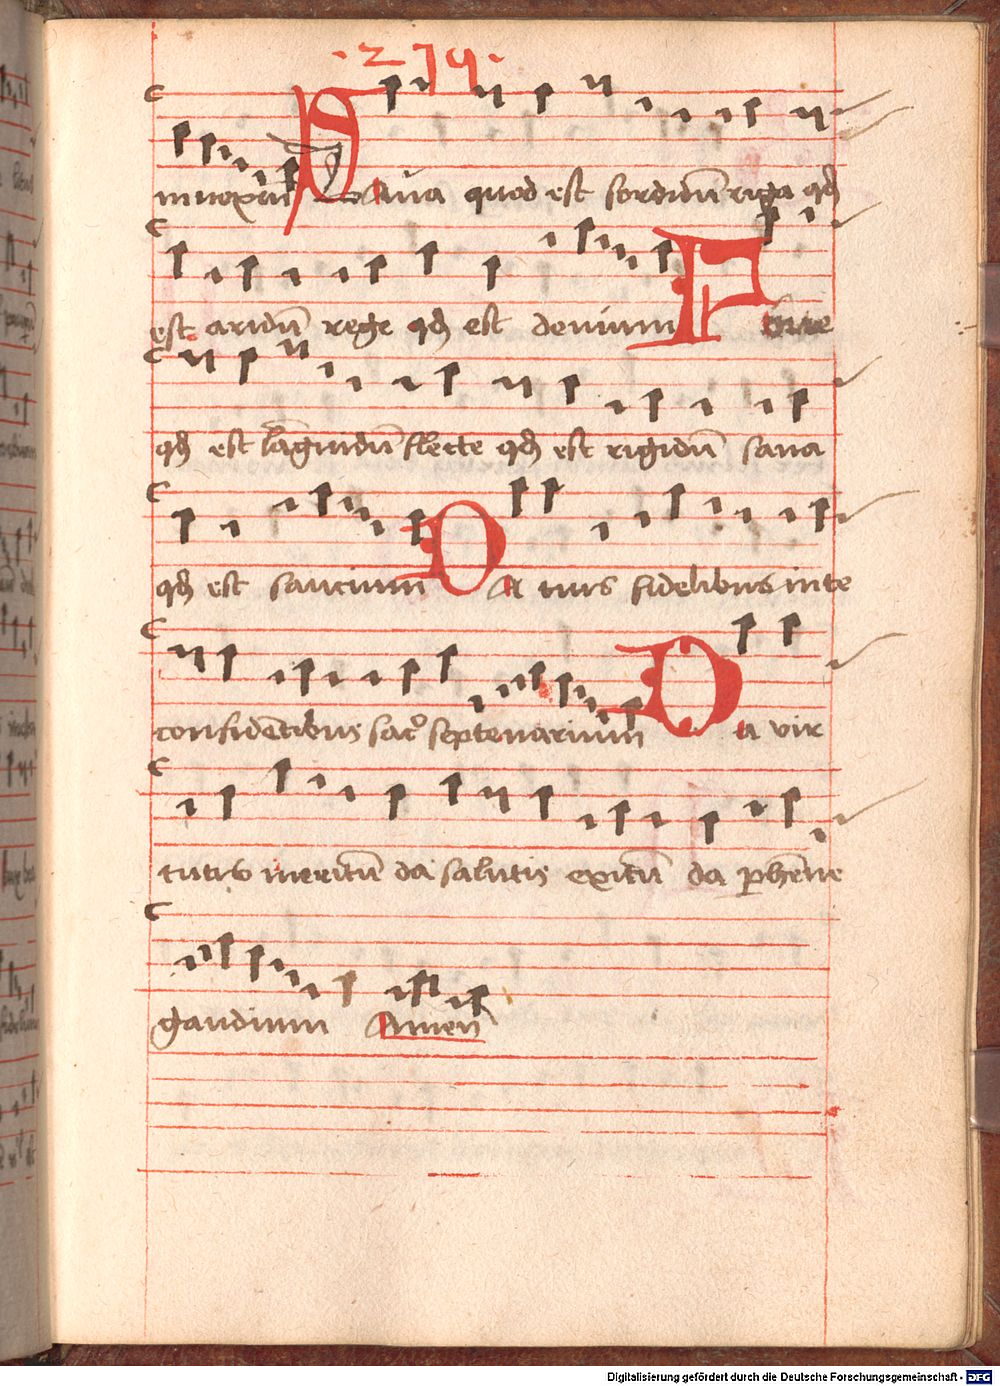 ·279·
innoxiū Laua quod est sordidū riga qđ
est aridū rege qđ est deuium Foue
qđ est lāguidū flecte qđ est rigidū sana
qđ est saucium Da tuis fidelibus in te
confidētibus sac septenarium Da vir
tutis meritū da salutis exitū da perhēne
gaudium Amen
Digitalisierung gefördert durch die Deutsche Forschungsgemeinschaft - DFG